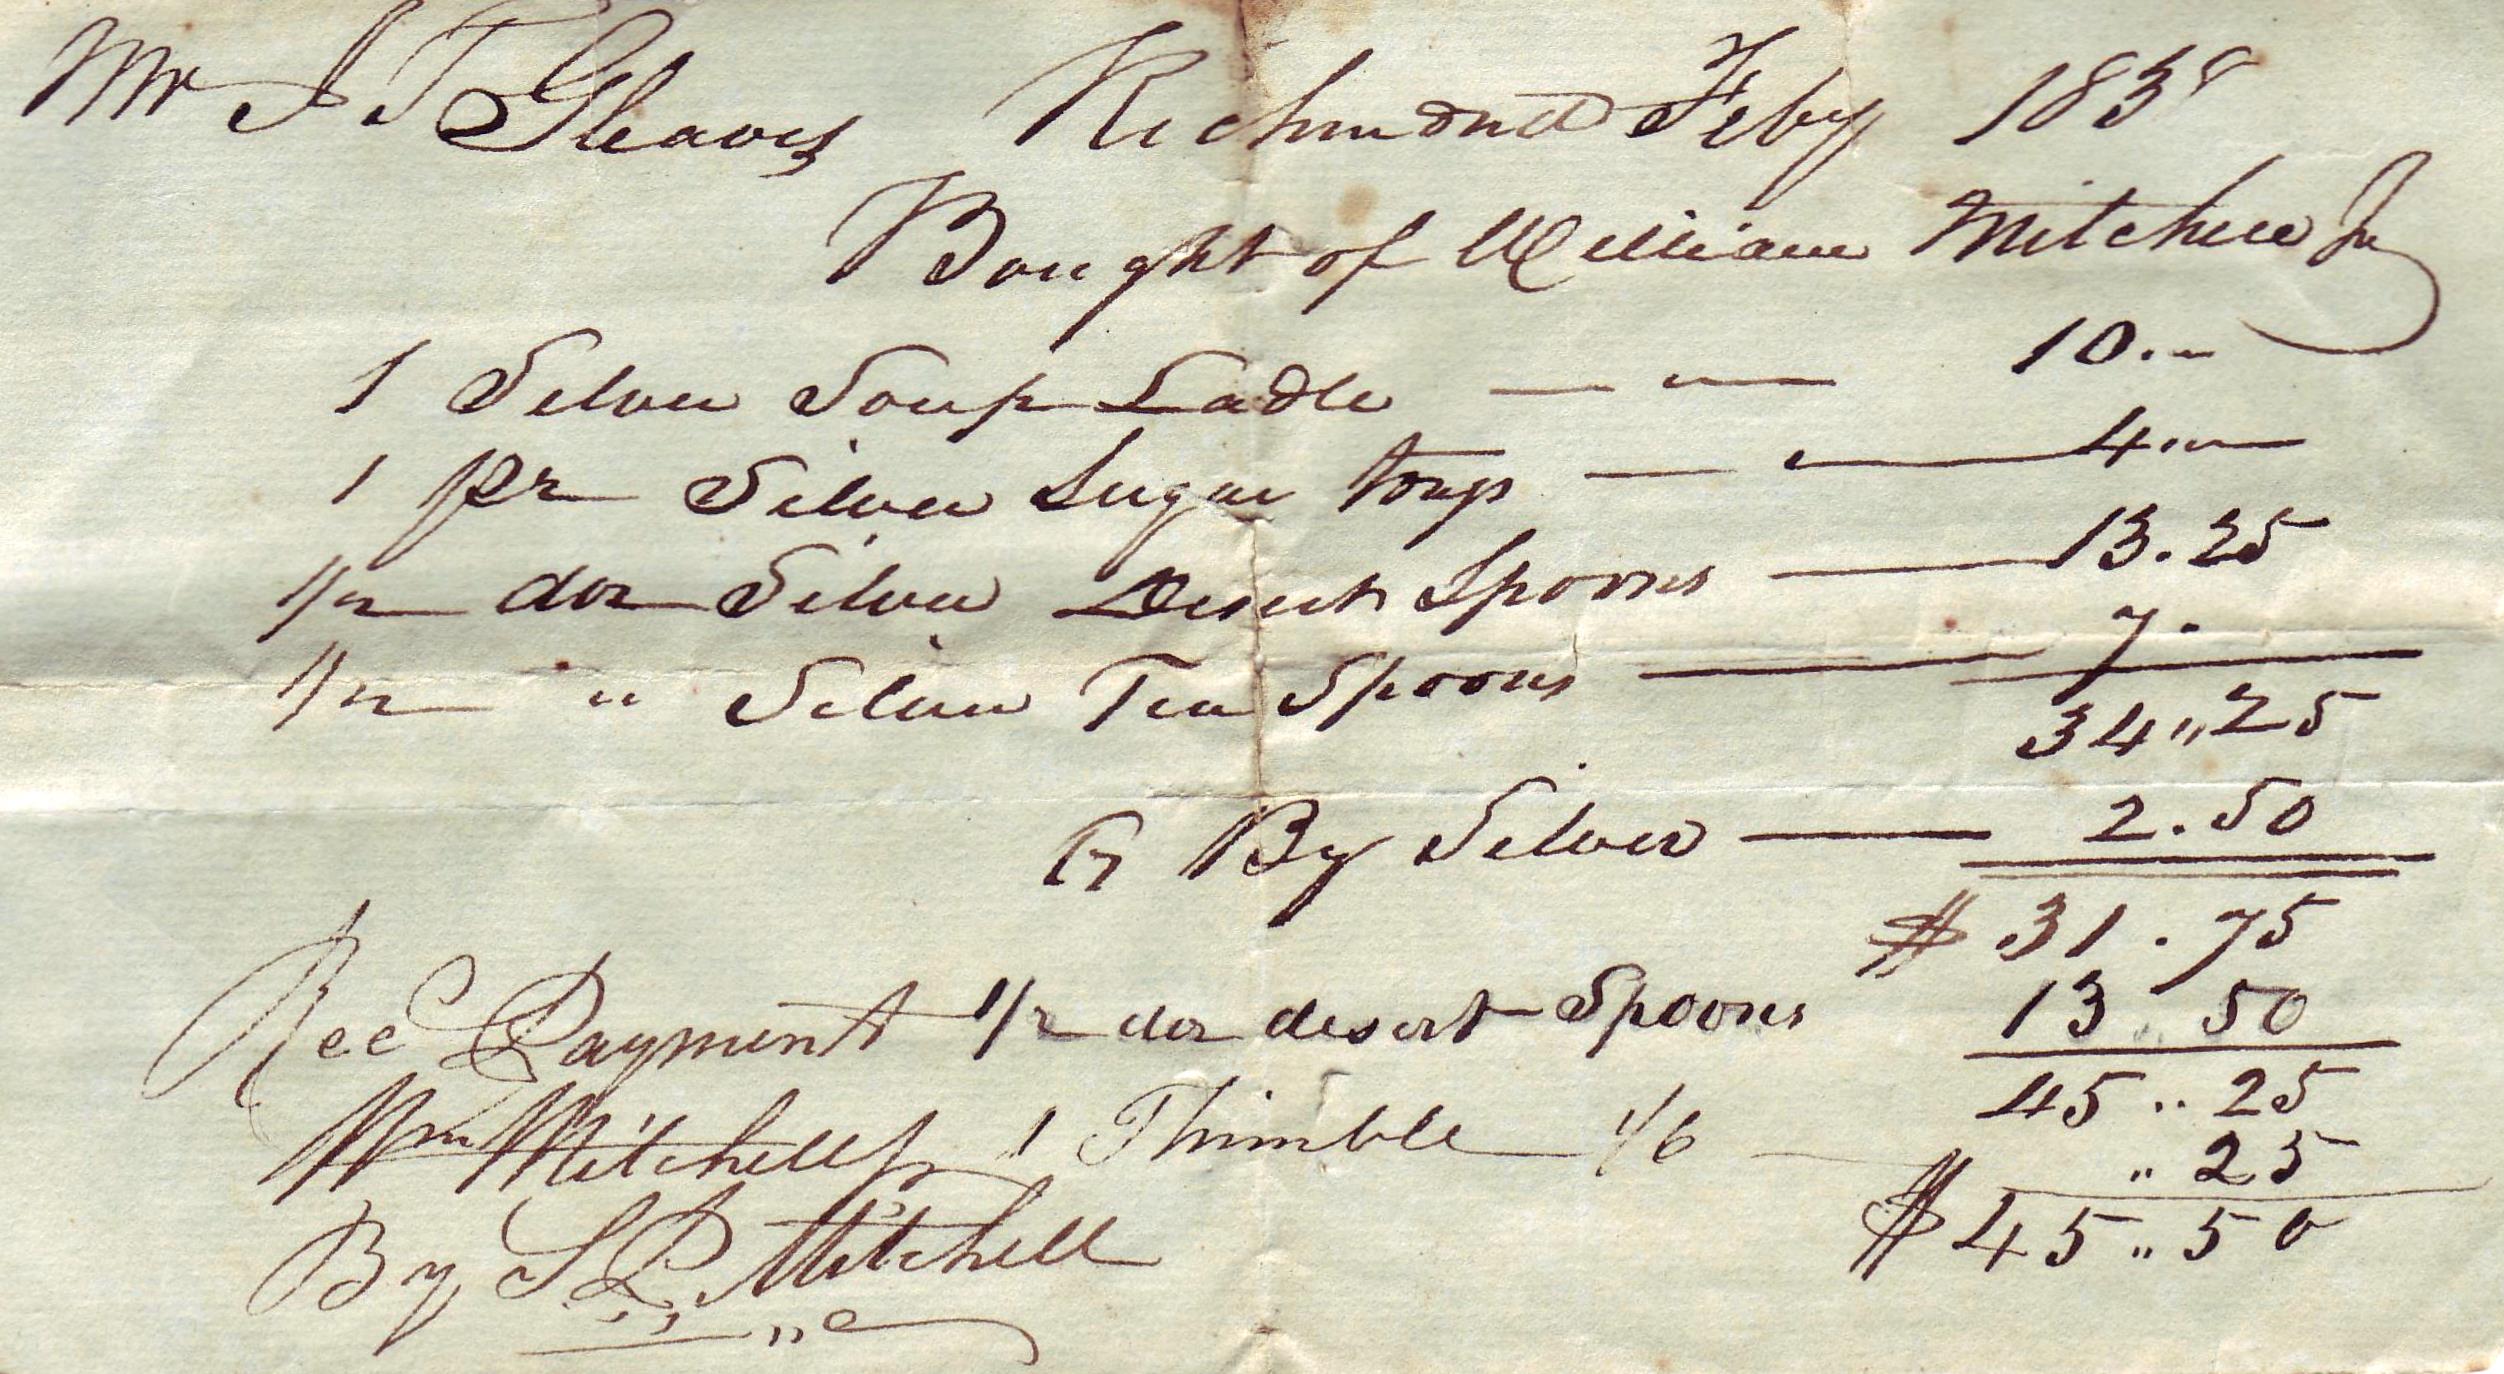 Mr J T Gleaves Richmond Feby 1838
Bought of William Mitchell Jr
1 Silver Soup Ladle — — 10.—
1 pr Silver Sugar tongs — — 4 "—
1/2 doz Silver Desert Spoons — 13.25
1/2 " Silver Tea Spoons — 7.
34 "25
Cr By Silver — 2.50
$ 31.75
Rec Payment 1/2 doz desert Spoons 13.50
45 " 25
Wm Mitchell Jr 1 Thimble 1/6 — " 25
By S P Mitchell $ 45 " 50